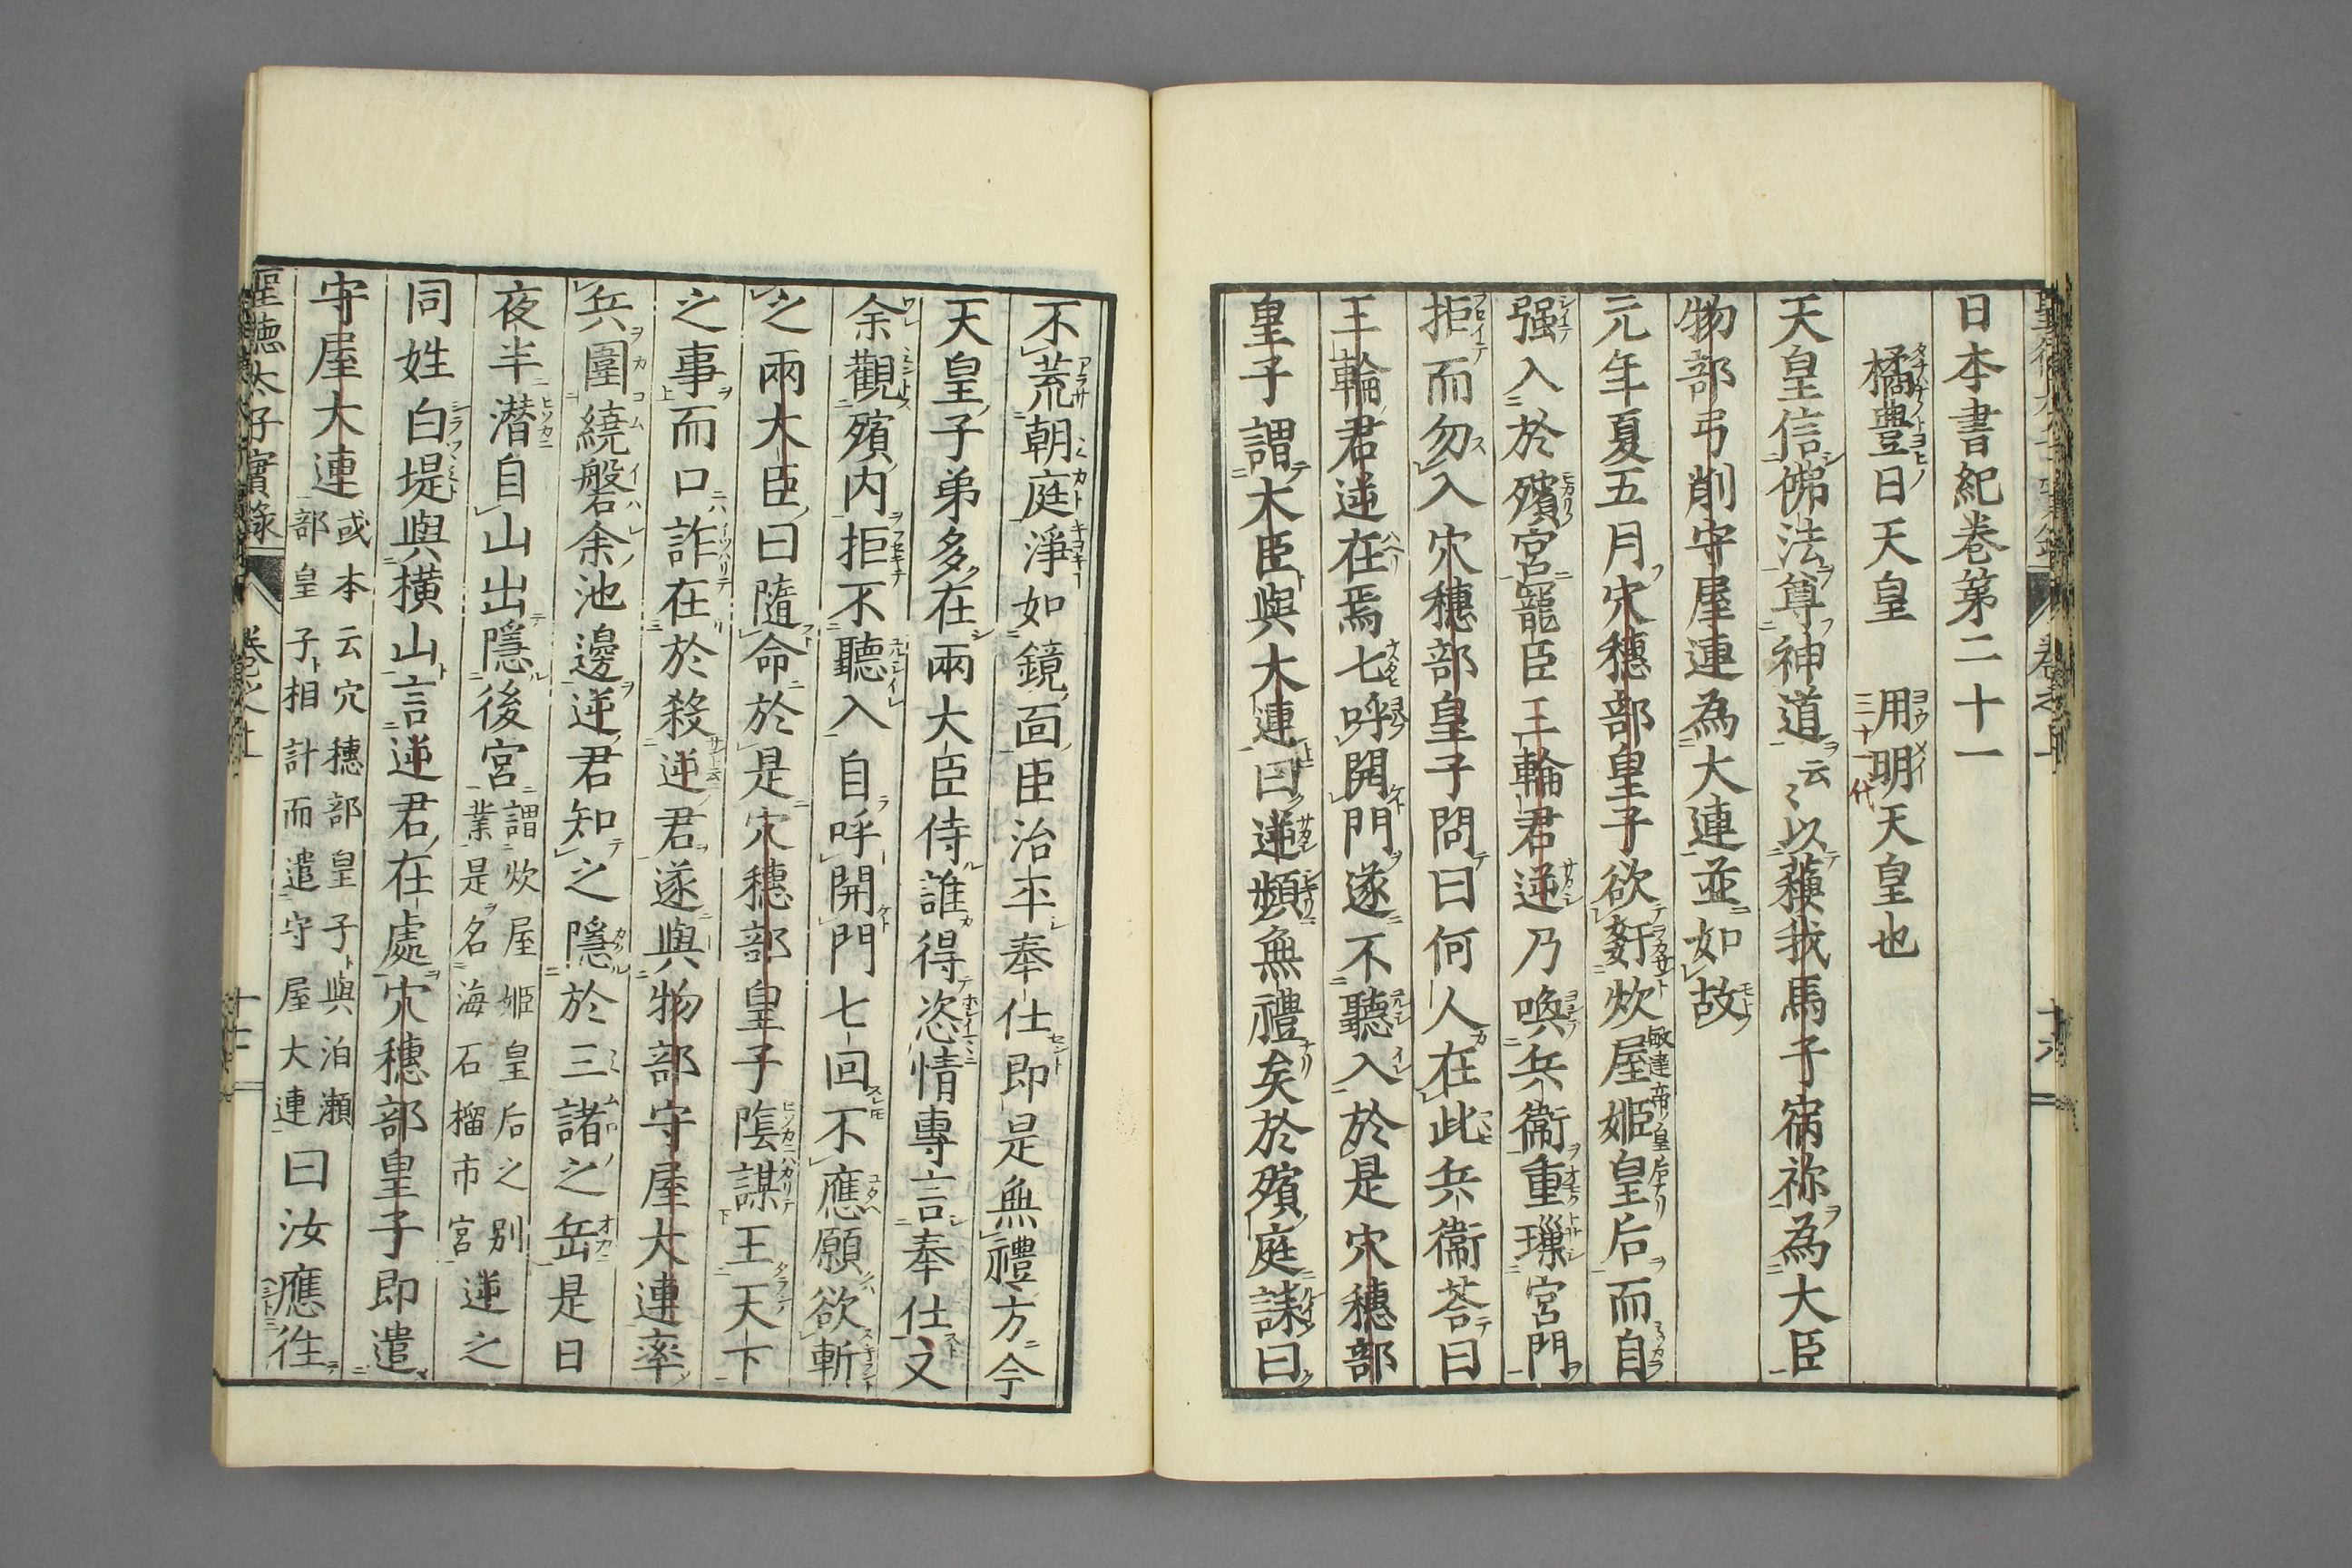 日本書紀巻第二十一
橘豐日天皇　用明天皇也
三十一代
天皇信佛法尊神道云〻以蘓我馬子宿祢為大臣
物部弓削守屋連為大連並如故
元年夏五月穴穗部皇子欲姧炊屋姬皇后而自
敏達帝ノ皇后ナリ
强入於殯宮寵臣三輪君逆乃喚兵衞重璅宮門
拒而勿入穴穗部皇子問曰何人在此兵衞荅曰
三輪君逆在焉七呼開門遂不聽入於是穴穗部
皇子謂大臣與大連曰逆頻無禮矣於殯庭誄曰
不荒朝庭淨如鏡靣臣治平奉仕即是無禮方今
天皇子弟多在兩大臣侍誰得恣情專言奉仕又
余觀殯内拒不聽入自呼開門七回不應願欲斬
之兩大臣曰隨命於是穴穗部皇子陰謀王天下
之事而口詐在於殺逆君遂與物部守屋大連率
兵圍繞磐余池邊逆君知之隱於三諸之岳是日
夜半潜自山出隱後宮謂炊屋姬皇后之别業是名海石榴市宮逆之
同姓白堤與横山言逆君在處穴穗部皇子即遣
守屋大連或本云穴穗部皇子與泊瀬部皇子相計而遣守屋大連曰汝應徃
聖德太子實錄　卷之上